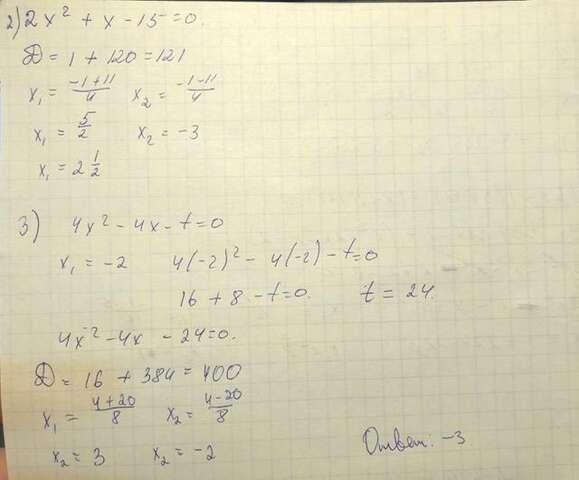 2) 2x² + x - 15 = 0.
D = 1 + 120 = 121
x₁ = (-1+11)/4 x₂ = (-1-11)/4
x₁ = 5/2 x₂ = -3
x₁ = 2 1/2
3) 4x² - 4x - t = 0
x₁ = -2 4(-2)² - 4(-2) - t = 0
16 + 8 - t = 0. t = 24.
4x² - 4x - 24 = 0.
D = 16 + 384 = 400
x₁ = (4+20)/8 x₂ = (4-20)/8
x₂ = 3 x₂ = -2
Ответ: -3